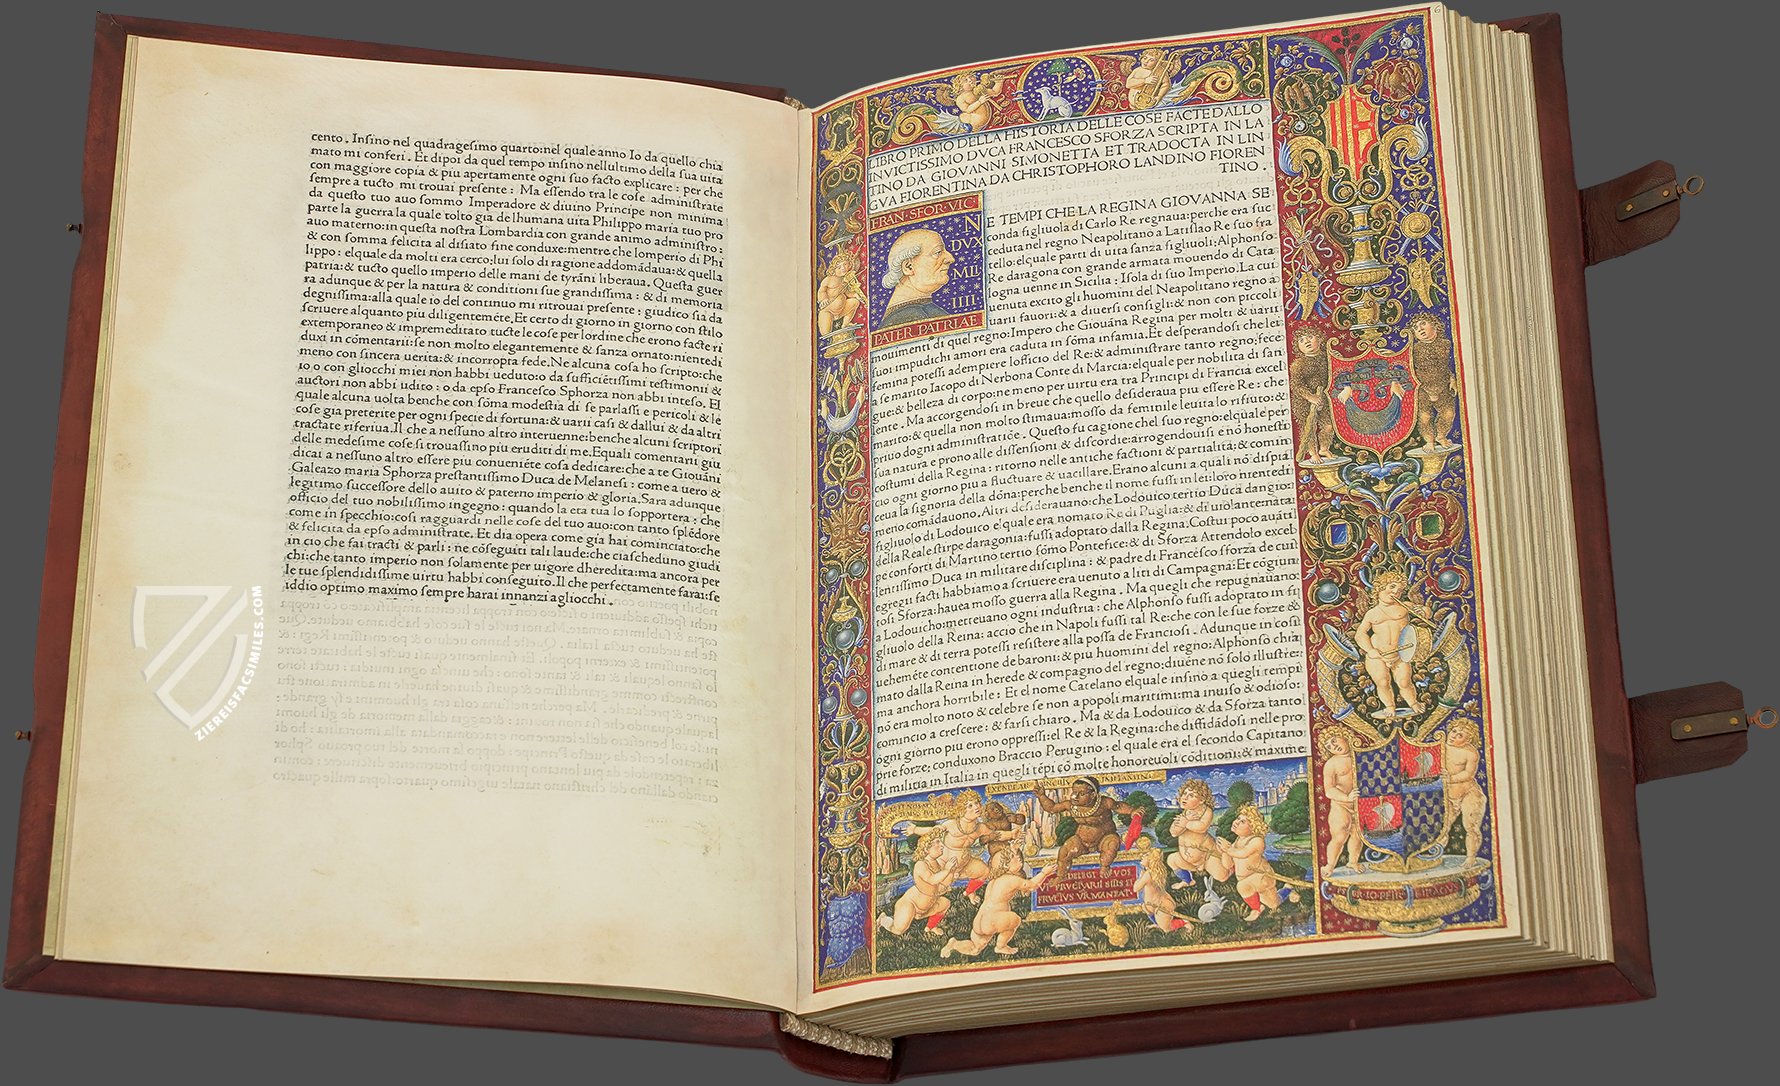 cento. Insino nel quadragesimo quarto:nel quale anno Io da quello chia
mato mi conferi. Et dipoi da quel tempo insino nellultimo della sua uita
con maggiore copia & piu apertamente ogni suo facto explicare: per che
sempre a tucto mi trouai presente: Ma essendo tra le cose administrate
da questo tuo auo sommo Imperadore & diuino Principe non minima
parte la guerra la quale tolto gia delhumana uita Philippo maria tuo pro
auo materno:in questa nostra Lombardia con grande animo administro:
& con somma felicita al disiato fine conduxe:mentre che lomperio di Phi
lippo: elquale da molti era cerco;lui solo di ragione addomādaua:& quella
patria:& tucto quello imperio delle mani de tyrāni liberaua. Questa guer
ra adunque & per la natura & conditioni sue grandissima: & di memoria
degnissima:alla quale io del continuo mi ritrouai presente: giudico sia da
scriuere alquanto piu diligentemēte. Et certo di giorno in giorno con stilo
extemporaneo & impremeditato tucte le cose per lordine che erono facte ri
duxi in cōmentarii:se non molto elegantemente & sanza ornato:nientedi
meno con sincera uerita:& incorropta fede. Ne alcuna cosa ho scripto:che
io o con gliocchi miei non habbi ueduto:o da sufficiētissimi testimonii &
auctori non abbi udito: o da epso Francesco Sphorza non abbi inteso. El
quale alcuna uolta benche con sōma modestia di se parlassi e pericoli & le
cose gia preterite per ogni specie di fortuna:& uarii casi & dallui & da altri
tractate riferiua. Il che a nessuno altro interuenne:benche alcuni scriptori
delle medesime cose si trouassino piu eruditi di me. Equali comentarii giu
dicai a nessuno altro essere piu conueniēte cosa dedicare:che a te Giouāni
Galeazo maria Sphorza prestantissimo Duca de Melanesi: come a uero &
legitimo successore dello auito & paterno imperio & gloria. Sara adunque
officio del tuo nobilissimo ingegno: quando la eta tua lo sopportera: che
come in specchio:cosi ragguardi nelle cose del tuo auo:con tanto splēdore
& felicita da epso administrate. Et dia opera come gia hai cominciato:che
in cio che fai tracti & parli: ne cōseguiti tali laude:che ciascheduno giudi
chi:che tanto imperio non solamente per uigore dheredita:ma ancora per
le tue splendidissime uirtu habbi conseguito. Il che perfectamente farai:se
iddio optimo maximo sempre harai innanzi agliocchi.
ZIEREISFACSIMILES.COM
6
LIBRO PRIMO DELLA HISTORIA DELLE COSE FACTE DALLO
INVICTISSIMO DVCA FRANCESCO SFORZA SCRIPTA IN LA
TINO DA GIOVANNI SIMONETTA ET TRADOCTA IN LIN
GVA FIORENTINA DA CHRISTOPHORO LANDINO FIOREN
TINO.
FRAN·SFOR·VIC
N
DVX
MLI
IIII
PATER PATRIAE
E TEMPI CHE LA REGINA GIOVANNA SE
conda figliuola di Carlo Re regnaua:perche era suc
ceduta nel regno Neapolitano a Latislao Re suo fra
tello:elquale parti di uita sanza figliuoli:Alphonso
Re daragona con grande armata mouendo di Cata
logna uenne in Sicilia: Isola di suo Imperio. La cui
uenuta excito gli huomini del Neapolitano regno a
uarii fauori:& a diuersi consigli:& non con piccoli
mouimenti di quel regno:Impero che Giouāna Regina per molti & uarii
suoi impudichi amori era caduta in sōma infamia. Et desperandosi che lei
femina potessi adempiere lofficio del Re:& administrare tanto regno:fece
a se marito Iacopo di Nerbona Conte di Marcia:elquale per nobilita di san
gue:& belleza di corpo:ne meno per uirtu era tra Principi di Francia excel
lente. Ma accorgendosi in breue che quello desideraua piu essere Re: che
marito:& quella non molto stimaua:mosso da feminile leuita lo rifiuto:&
priuo dogni administratiōe. Questo fu cagione chel suo regno:elquale per
sua natura e prono alle dissensioni & discordie:arrogendouisi e nō honesti
costumi della Regina: ritorno nelle antiche factioni & partialita:& comin
cio ogni giorno piu a fluctuare & uacillare. Erano alcuni a quali nō dispia
ceua la signoria della dōna:perche benche il nome fussi in lei:loro nientedi
meno comādauono. Altri desiderauano:che Lodouico tertio Duca dangio:
figliuolo di Lodouico elquale era nomato Re di Puglia:& di uiolantenata
della Reale stirpe daragonia:fussi adoptato dalla Regina. Costui poco auāti
pe conforti di Martino tertio sōmo Pontefice:& di Sforza Attendolo excel
lentissimo Duca in militare disciplina: & padre di Francesco sforza de cui
egregii facti habbiamo a scriuere era uenuto a liti di Campagna: Et cōgiun
tosi Sforza:hauea mosso guerra alla Regina. Ma quegli che repugnauano:
a Lodouicho:metteuano ogni industria: che Alphonso fussi adoptato in fi
gliuolo della Reina: accio che in Napoli fussi tal Re:che con le sue forze &
di mare & di terra potessi resistere alla possa de Franciosi. Adunque in cosi
uehemēte contentione de baroni:& piu huomini del regno:Alphonso chia
mato dalla Reina in herede & compagno del regno:diuēne nō solo illustre:
ma anchora horribile: Et el nome Catelano elquale insino a quegli tempi
nō era molto noto & celebre se non a popoli marittimi:ma inuiso & odioso:
comincio a crescere: & farsi chiaro. Ma & da Lodouico & da Sforza tanto
ogni giorno piu erono oppressi:el Re & la Regina:che diffidādosi nelle pro
prie forze: conduxono Braccio Perugino: el quale era el secondo Capitano
di militia in Italia in quegli tēpi cō molte honoreuoli cōditioni:& maxime
DELEGI
VT FRVCTARII SITIS ET
FRVCTVS